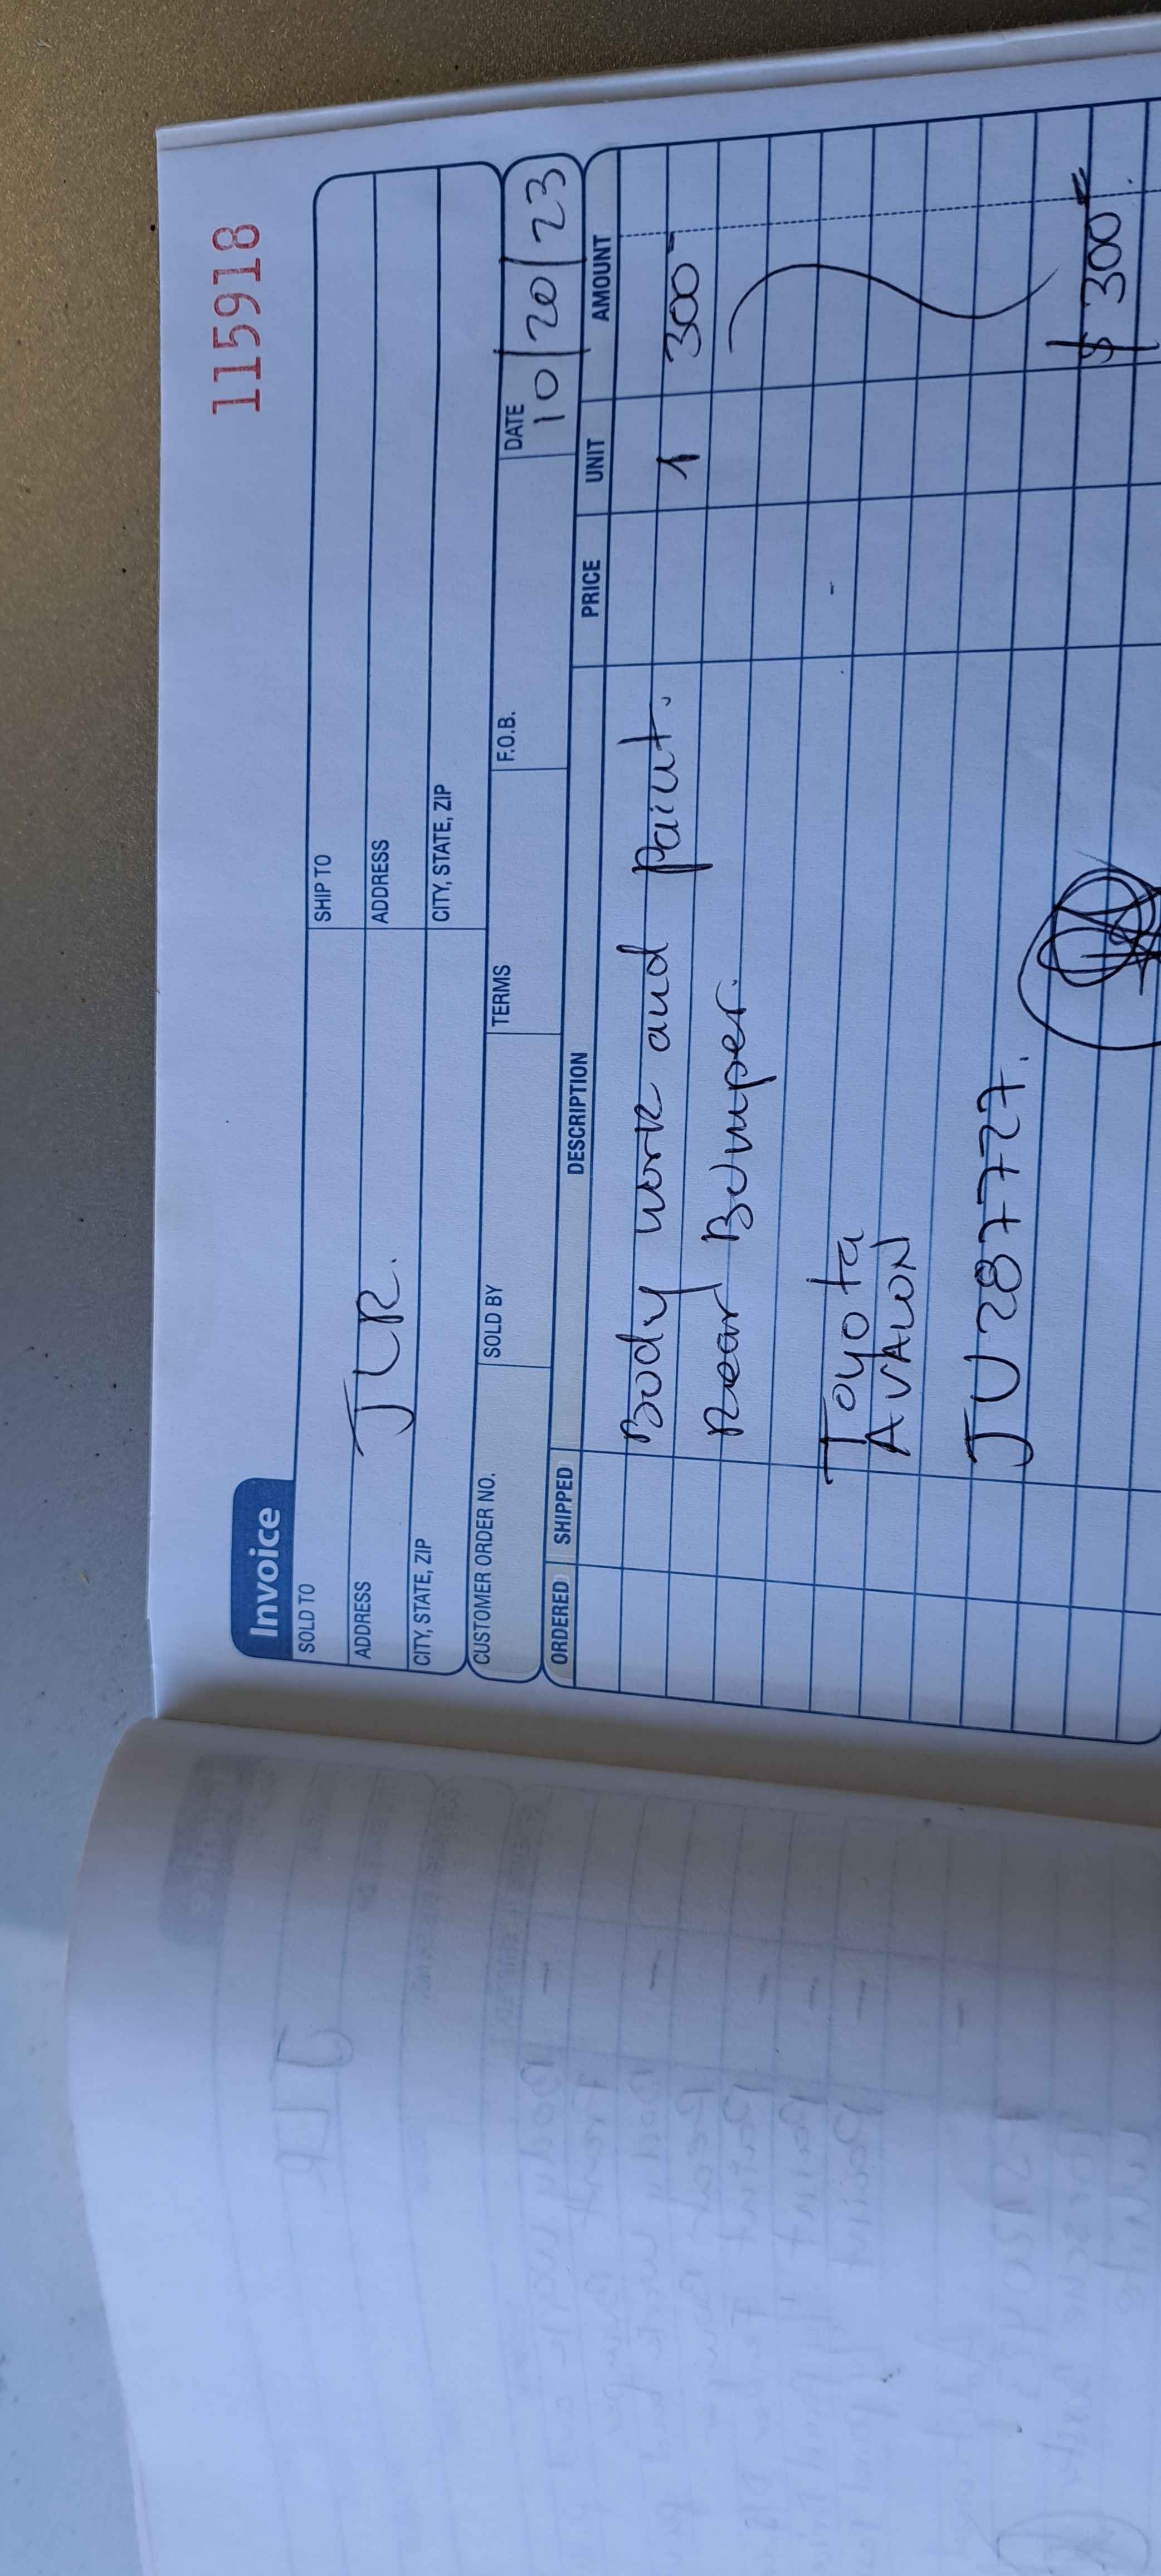 115918
Invoice
SOLD TO JLR.
SHIP TO
ADDRESS
ADDRESS
CITY, STATE, ZIP
CITY, STATE, ZIP
CUSTOMER ORDER NO. SOLD BY TERMS F.O.B. DATE 10/20/23
ORDERED SHIPPED DESCRIPTION PRICE UNIT AMOUNT
Body work and paint. 1 300-
Rear Bumper.
Toyota
AVALON
JU287727.
$ 300